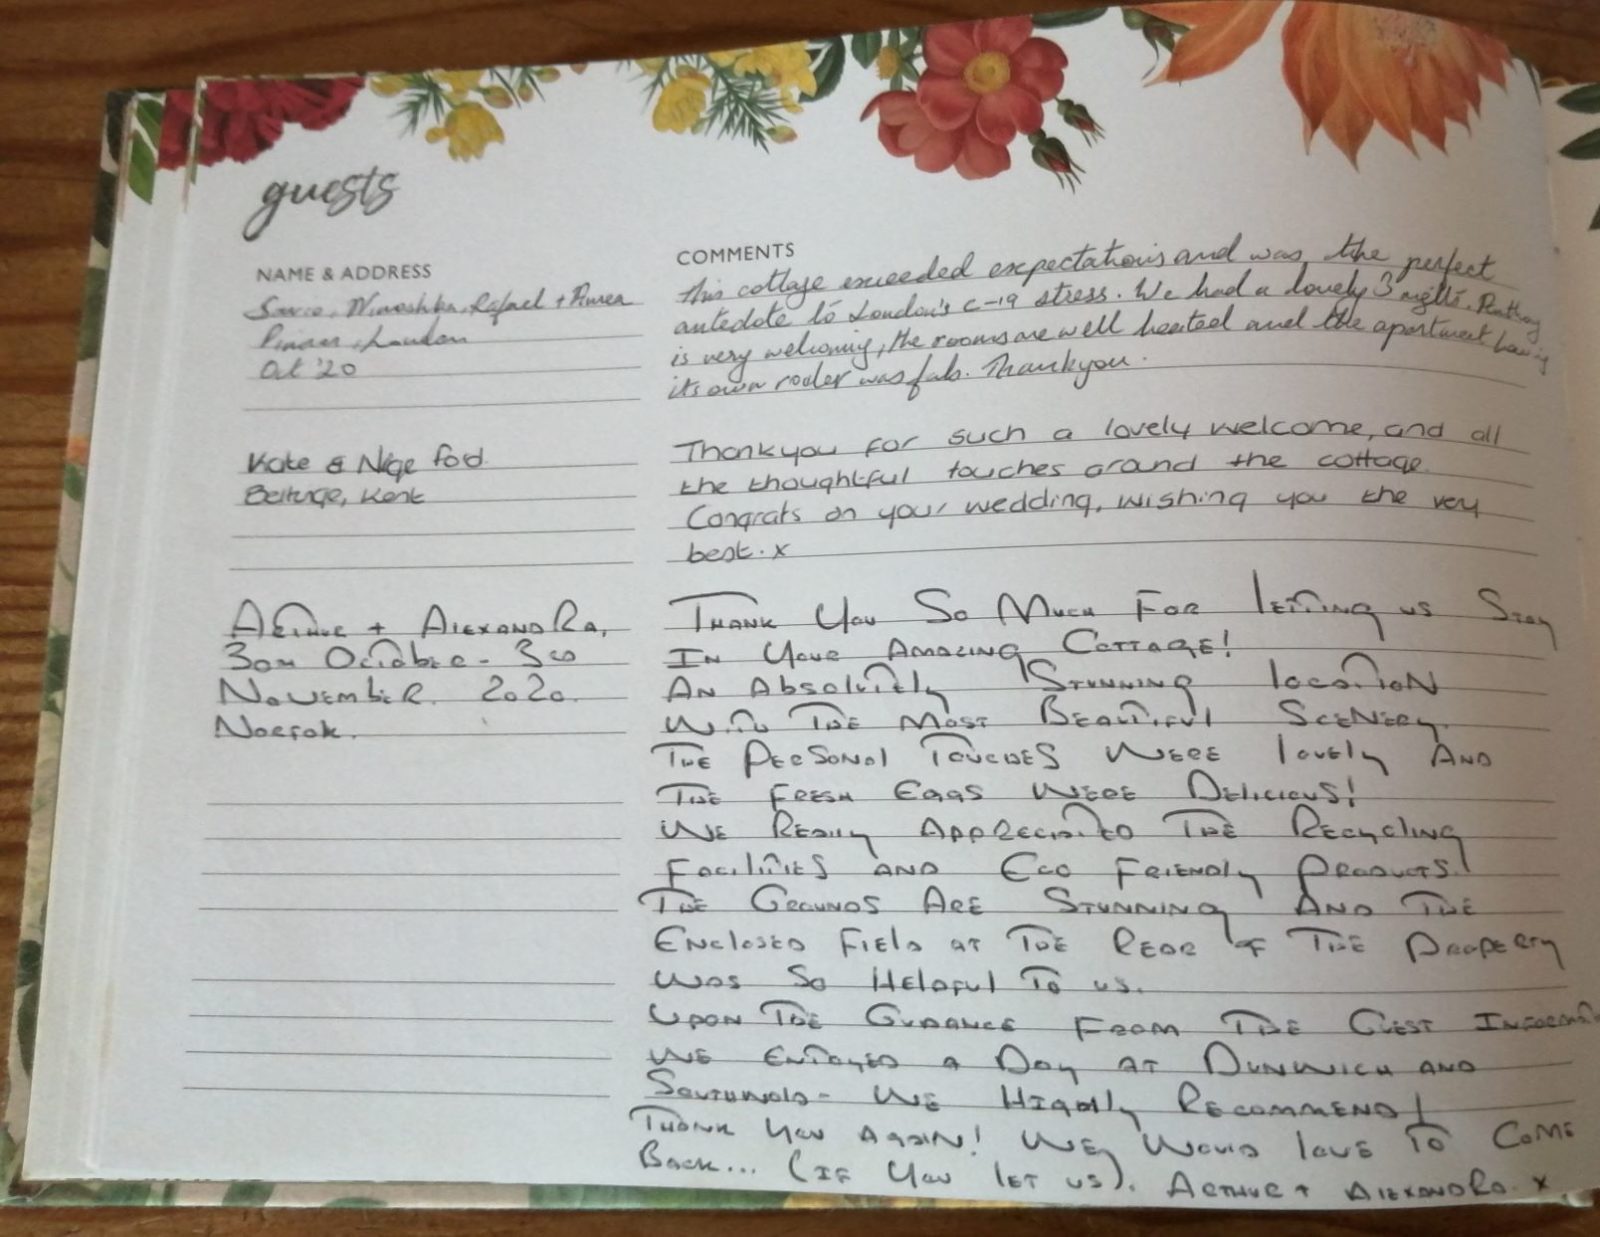 guests
NAME & ADDRESS
COMMENTS
Rafael +
London
Oct '20
This cottage exceeded expectations and was the perfect
antedote to London's C-19 stress. We had a lovely 3 nights.
is very welcoming, the rooms are well heated and the apartment having
its own router was fab. Thankyou.
Kate & Nige Ford
Kent
Thankyou for such a lovely welcome, and all
the thoughtful touches around the cottage.
Congrats on your wedding, wishing you the very
best. x
Arthur + Alexandra,
30th October - 3rd
November 2020.
Norfolk.
Thank You So Much For Letting us Stay
In Your Amazing Cottage!
An Absolutely Stunning location
With The Most Beautiful Scenery.
The Personal Touches Were lovely And
The Fresh Eggs Were Delicious!
We Really Appreciated The Recycling
Facilities and Eco Friendly Products.
The Grounds Are Stunning And The
Enclosed Field at The Rear of The Property
Was So Helpful To us.
Upon The Guidance From The Guest
We Enjoyed a Day at Dunwich and
Southwold - We Highly Recommend!
Thank You Again! We Would love To Come
Back... (If You let us). Arthur + Alexandra. x